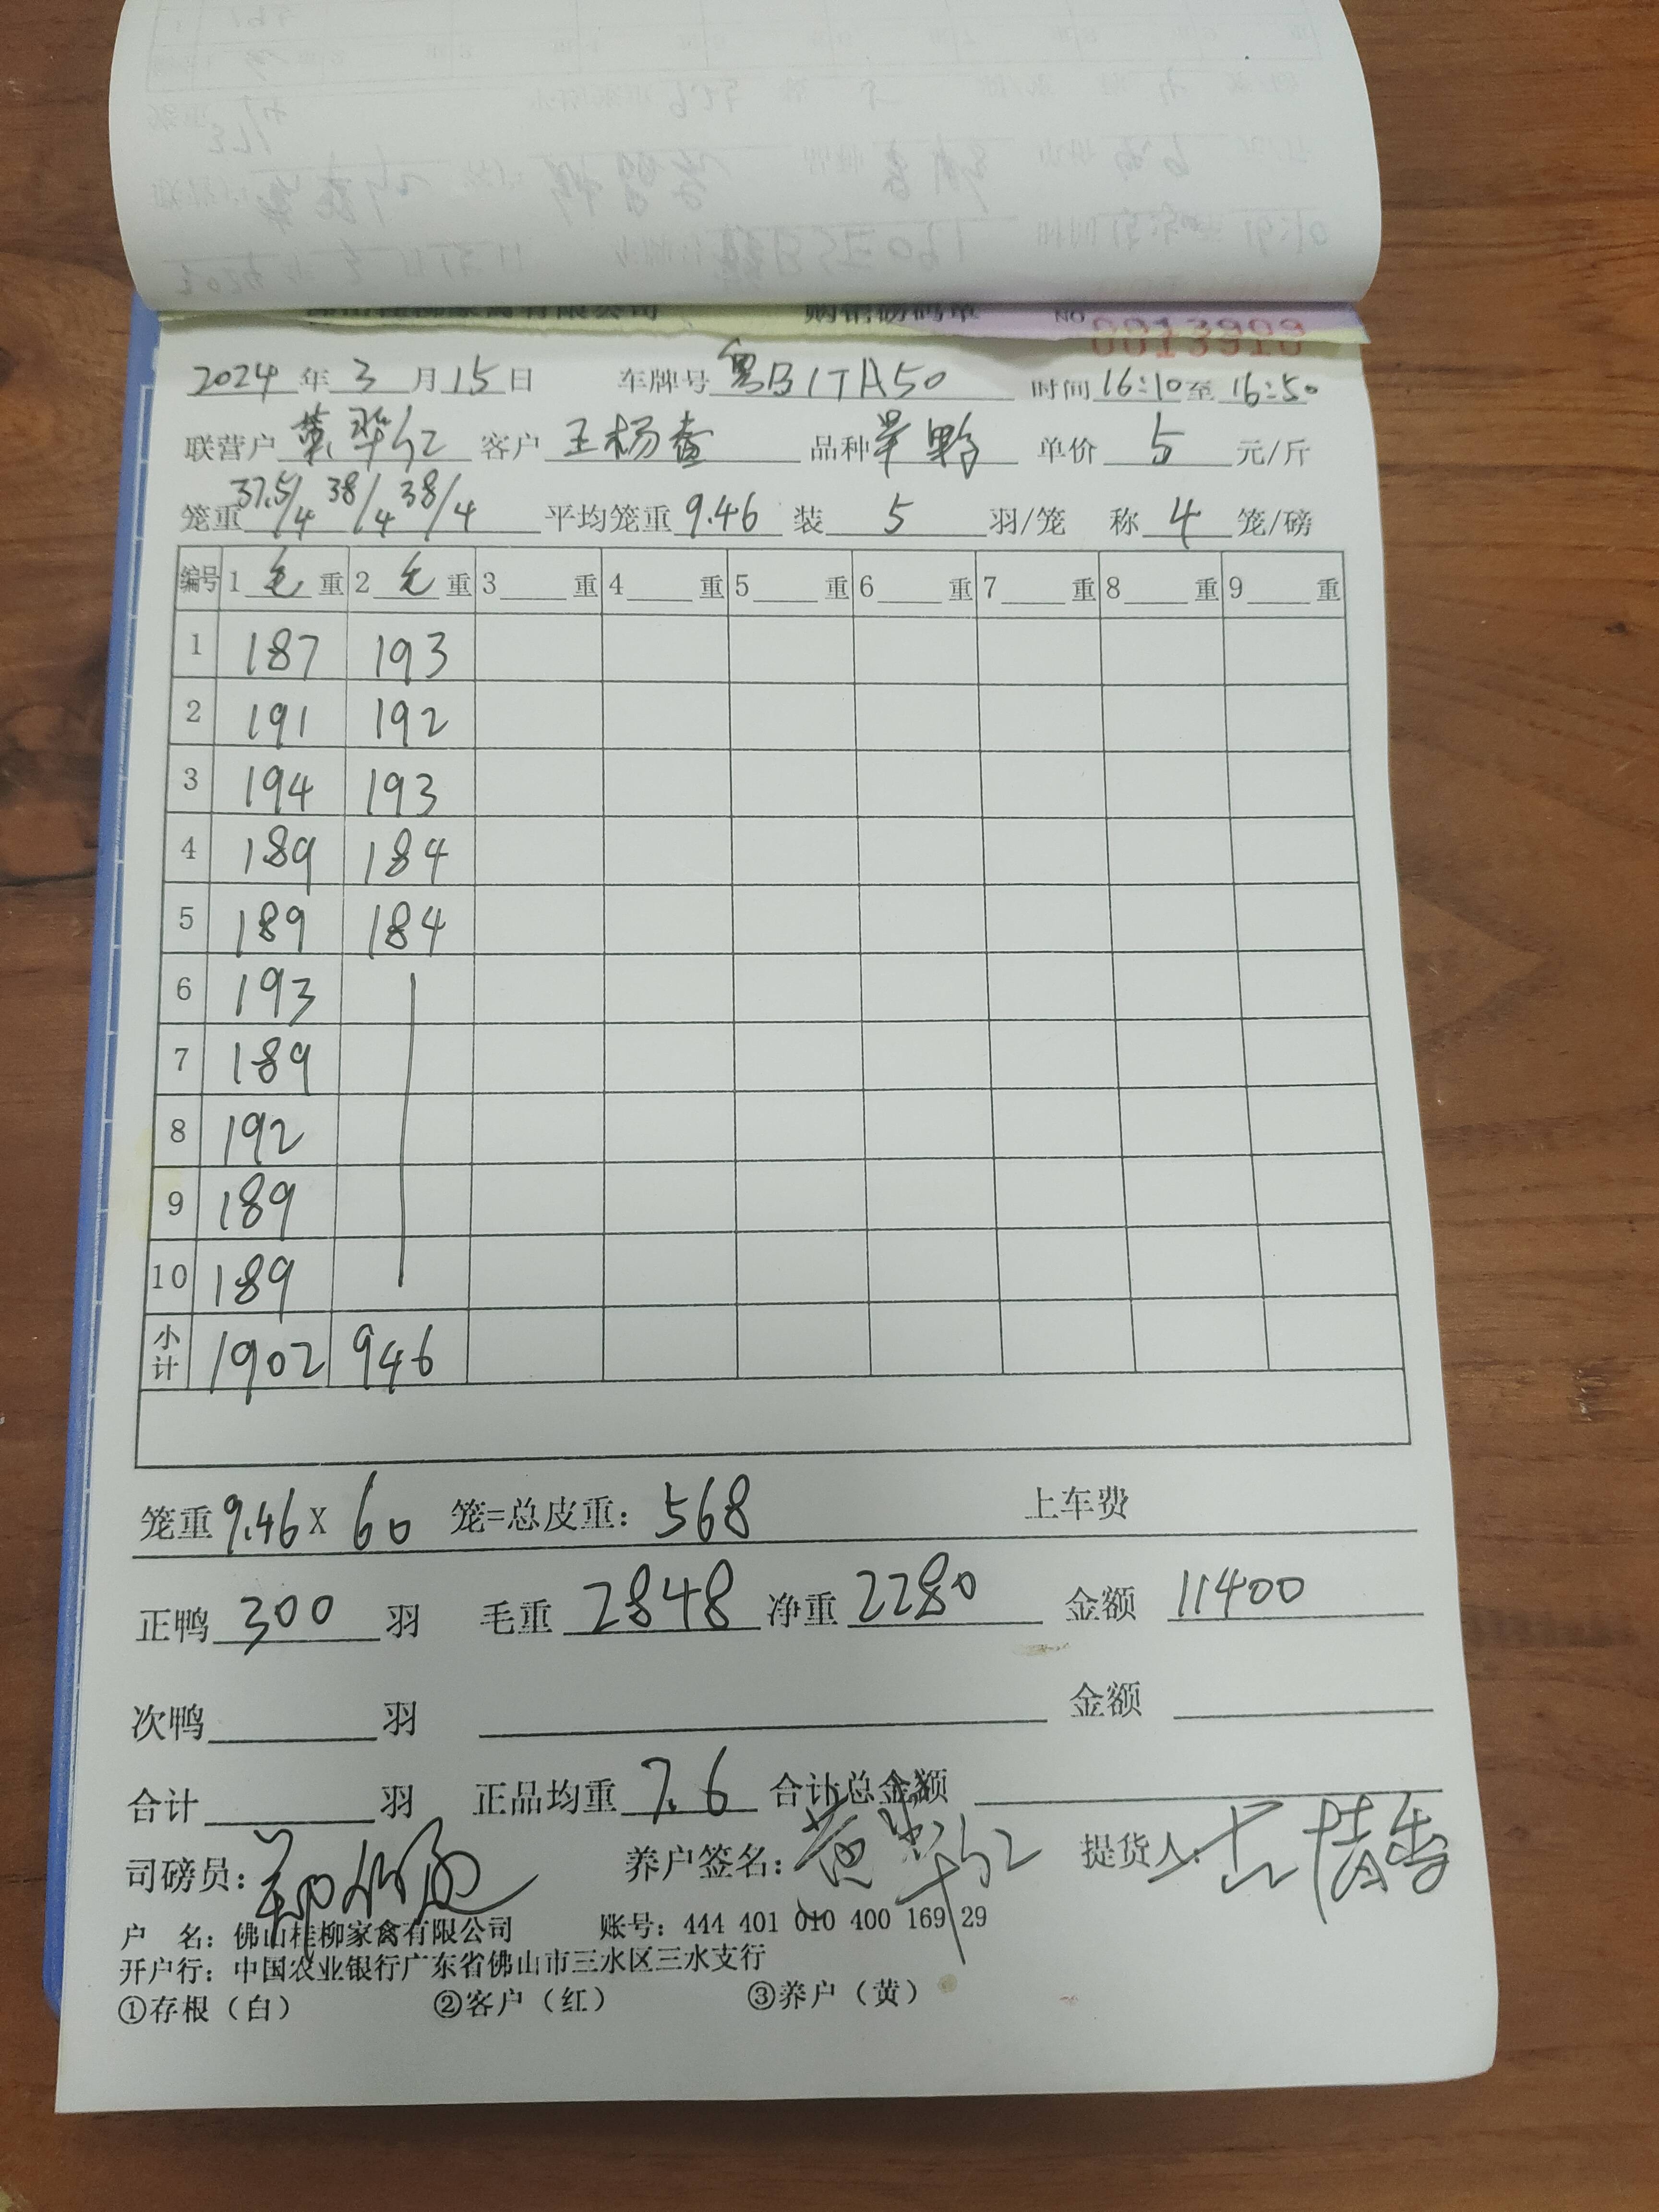 佛山桂柳家禽有限公司 购销磅码单 NO
0013910
2024 年 3 月 15 日 车牌号 粤B1TA50 时间 16:10 至 16:50
联营户 客户 王杨 品种 单价 5 元/斤
笼重 37.5/4 38/4 38/4 平均笼重 9.46 装 5 羽/笼 称 4 笼/磅
编号 1 毛 重 2 毛 重 3 重 4 重 5 重 6 重 7 重 8 重 9 重
1 187 193
2 191 192
3 194 193
4 189 184
5 189 184
6 193
7 189
8 192
9 189
10 189
小计 1902 946
笼重 9.46 X 60 笼=总皮重: 568 上车费
正鸭 300 羽 毛重 2848 净重 2280 金额 11400
次鸭 羽 金额
合计 羽 正品均重 7.6 合计总金额
司磅员: 养户签名: 提货人:
户 名: 佛山桂柳家禽有限公司 账号: 444 401 010 400 169 29
开户行: 中国农业银行广东省佛山市三水区三水支行
①存根（白） ②客户（红） ③养户（黄）